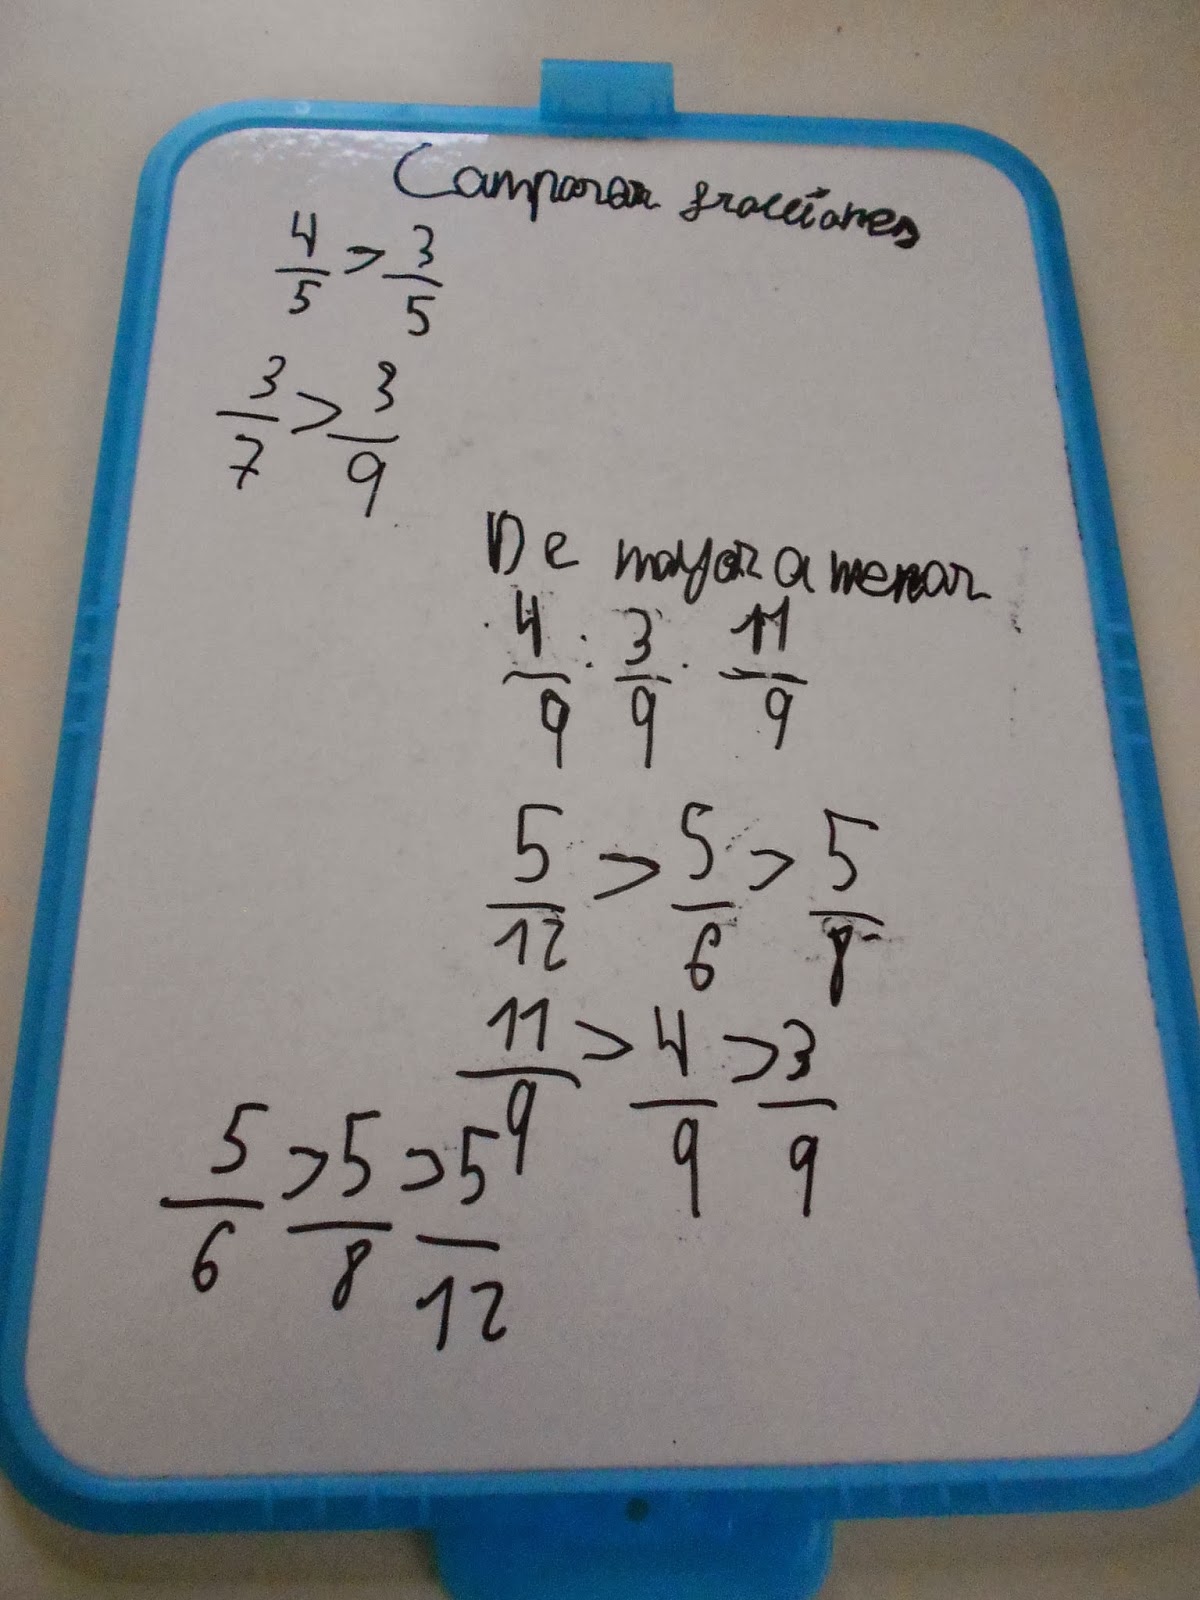 Comparar fracciones
4/5 > 3/5
3/7 > 3/9
De mayor a menor
4/9 . 3/9 . 11/9
5/12 > 5/6 > 5/8
11/9 > 4/9 > 3/9
5/6 > 5/8 > 5/12